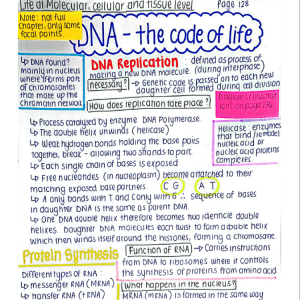 Life at Molecular, cellular and tissue level
Page 128
Note: not full
chapter, only some
focal points.
DNA - the code of life
↳ DNA found?
mainly in nucleus
where it forms part
of chromosomes
that make up the
chromatin network
DNA Replication: defined as process of
making a new DNA molecule. (during interphase)
necessary? → Genetic code is passed on to each new
daughter cell formed during cell division
How does replication take place?
↳ Process catalysed by enzyme DNA Polymerase.
↳ The double helix unwinds (helicase)
↳ Weak hydrogen bonds holding the base pairs
together, break - allowing two strands to part.
↳ Each single chain of bases is exposed
↳ Free nucleotides (in nucleoplasm) become attatched to their
matching exposed base partners. C G A T
↳ A only bonds with T and C only with G ∴ sequence of bases
in daughter DNA is the same as parent DNA.
↳ One DNA double helix therefore becomes two identical double
helixes. Daughter DNA molecules each twist to form a double helix
which then winds itself around the histones, forming a chromosome.
on page 132
Helicase: enzymes
that bind/remodel
nucleic acid or
nucleic acid protein
complexes.
Protein Synthesis
Function of RNA → Carries instructions
from DNA to ribosomes where it controls
the synthesis of proteins from amino acid
Different types of RNA:
↳ messenger RNA (MRNA)
↳ transfer RNA (tRNA)
What happens in the nucleus?
MRNA (mRNA) is formed in the same way